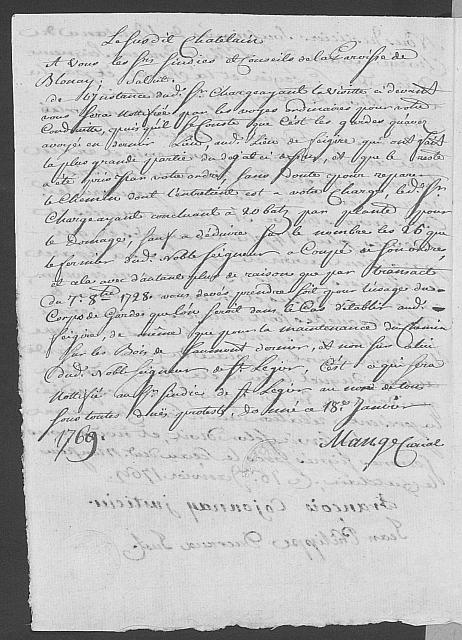 Le Susdit Châtelain
A Vous les Srs Sindics et Conseils de la Parroisse de
Blonay, Salut.
de l'instance dud. Sr. Chargeayant la Visitte ci devant
vous sera Nottifiée par les voyes ordinaires pour votre
Conduitte, puis qu'il Conste que c'est les gardes qu'avez
avoyé en dernier Lieu, aud. Lieu de Feigire qui ont fait
la plus grande partie du degat ci dessus, et que le reste
a été pris par votre ordre, sans doute pour reparer
le Chemin dont l'entretient est a votre Charge, led. Sr.
Chargeayant concluant à 20 batz par plante pour
le Domage, sauf a déduire sur le nombre les 26 que
le fermier dud. Noble Seigneur a Coupé de son ordre,
et cela avec d'autant plus de raison que par transact
du 7e. 8bre 1728 vous devés prendre soit pour l'usage du
Corps de Gardes que l'on seroit dans le Cas d'établir aud.
Feigire, de même que pour la maintenance du Chemin
sur les Bois de dernier, et non sur celui
dud. Noble Seigneur de St. Legier, C'est ce qui sera
Nottifié au Sr. Sindic de St. Legier au nom de tous
sous toutes dues protests, donné ce 18e. Janvier
1769. Mange Curial
François Cojonnay justicier.
Jean Philippe Ducraux Just.